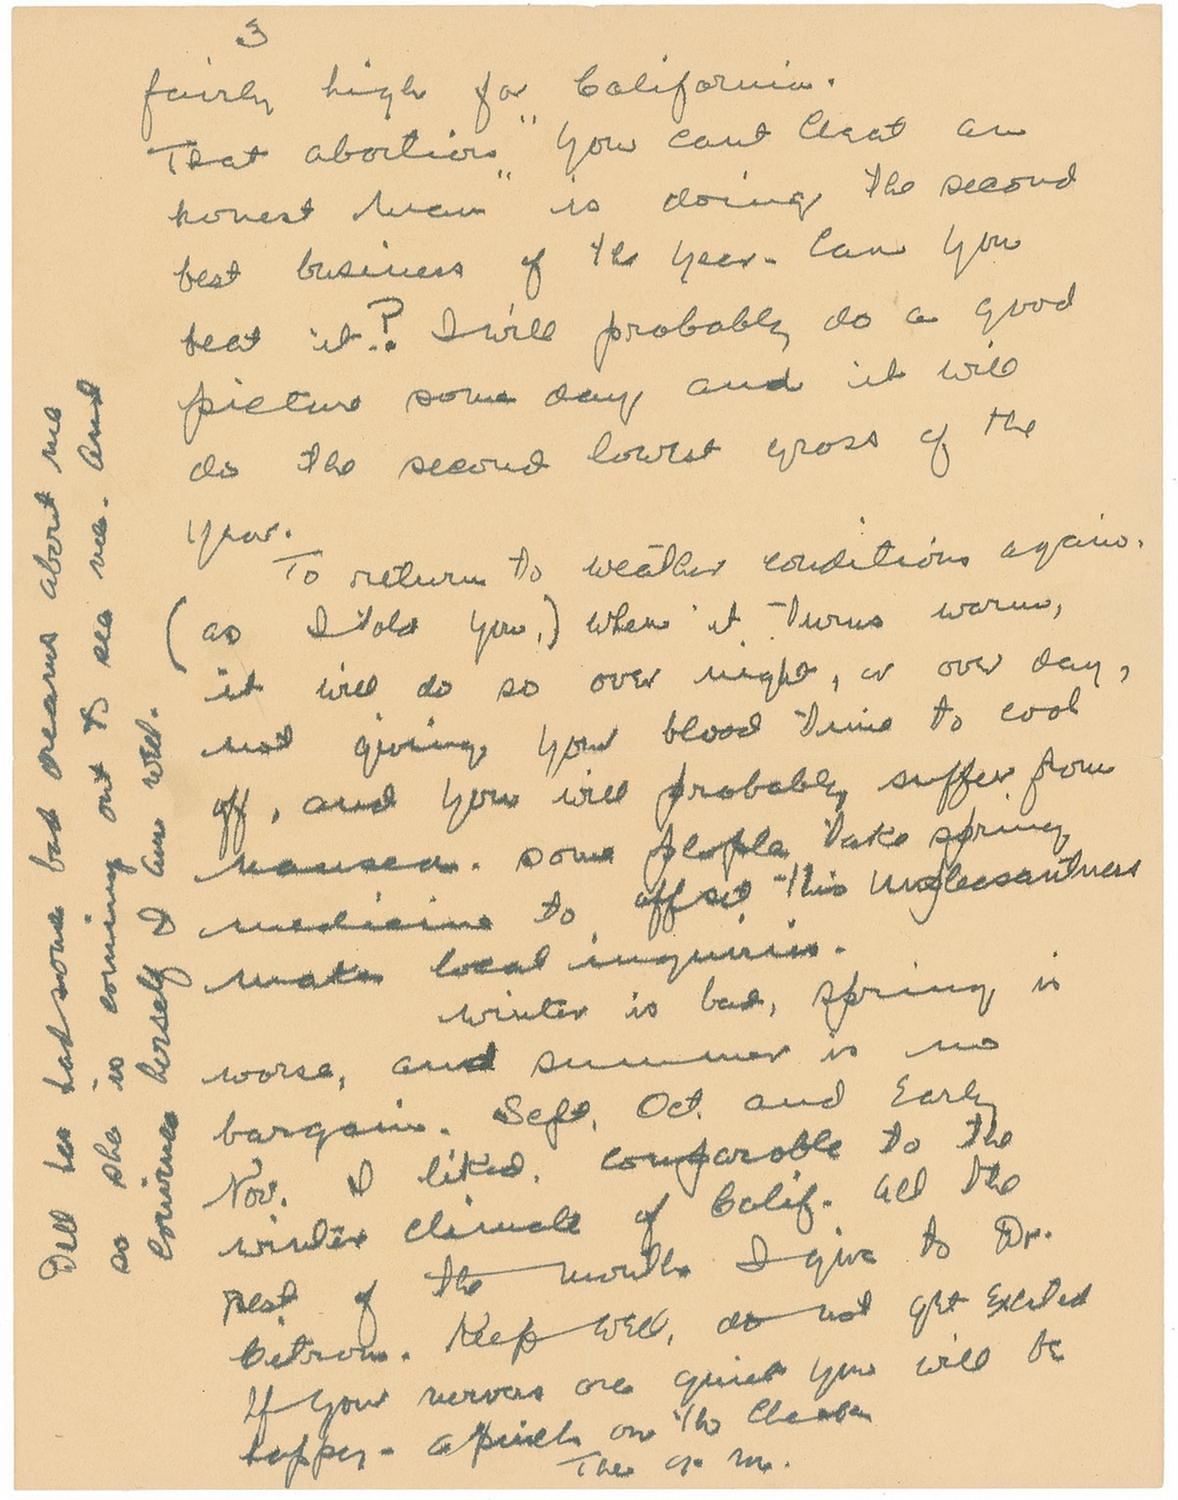 3
fairly high for California.
That abortion "You cant Cheat an
honest Man" is doing the second
best business of the year. Can you
beat it? I will probably do a good
picture some day and it will
do the second lowest gross of the
year.
To return to weather conditions again.
(as I told you,) when it turns warm,
it will do so over night, or over day,
not giving your blood time to cool
off, and you will probably suffer from
nausea. some people take spring
medicine to offset this unpleasantness
make local inquiries.
winter is bad, spring is
worse, and summer is no
bargain. Sept, Oct. and Early
Nov. I liked. comparable to the
winter climate of Calif. all the
rest of the months I give to Dr.
Citron. Keep well, do not get Excited
If your nerves are quiet you will be
happy - a pinch on the Cheek
The G. M.
Dell has had some bad dreams about me
so she is coming out to see me. and
convince herself I am well.